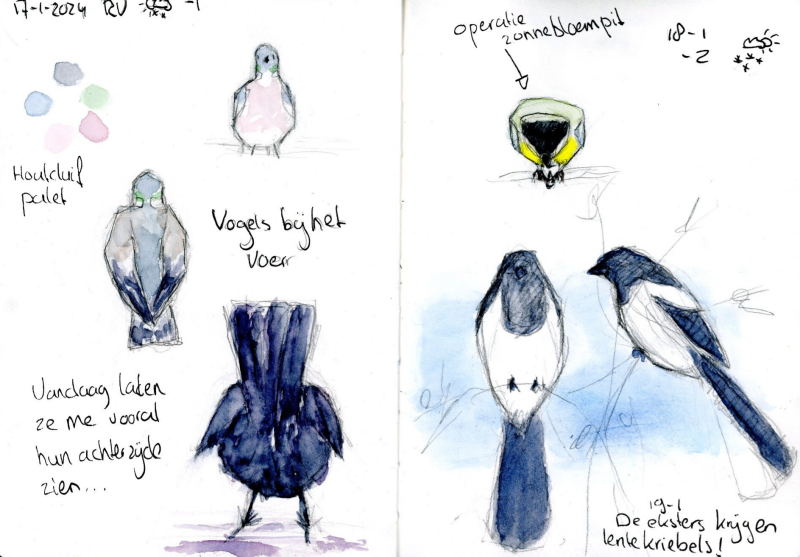 17-1-2024 RV -1
Houtduif
palet
Vogels bij het
voer
Vandaag laten
ze me vooral
hun achterzijde
zien...
operatie
zonnebloempit
18-1
-2
19-1
De eksters krijgen
lentekriebels!